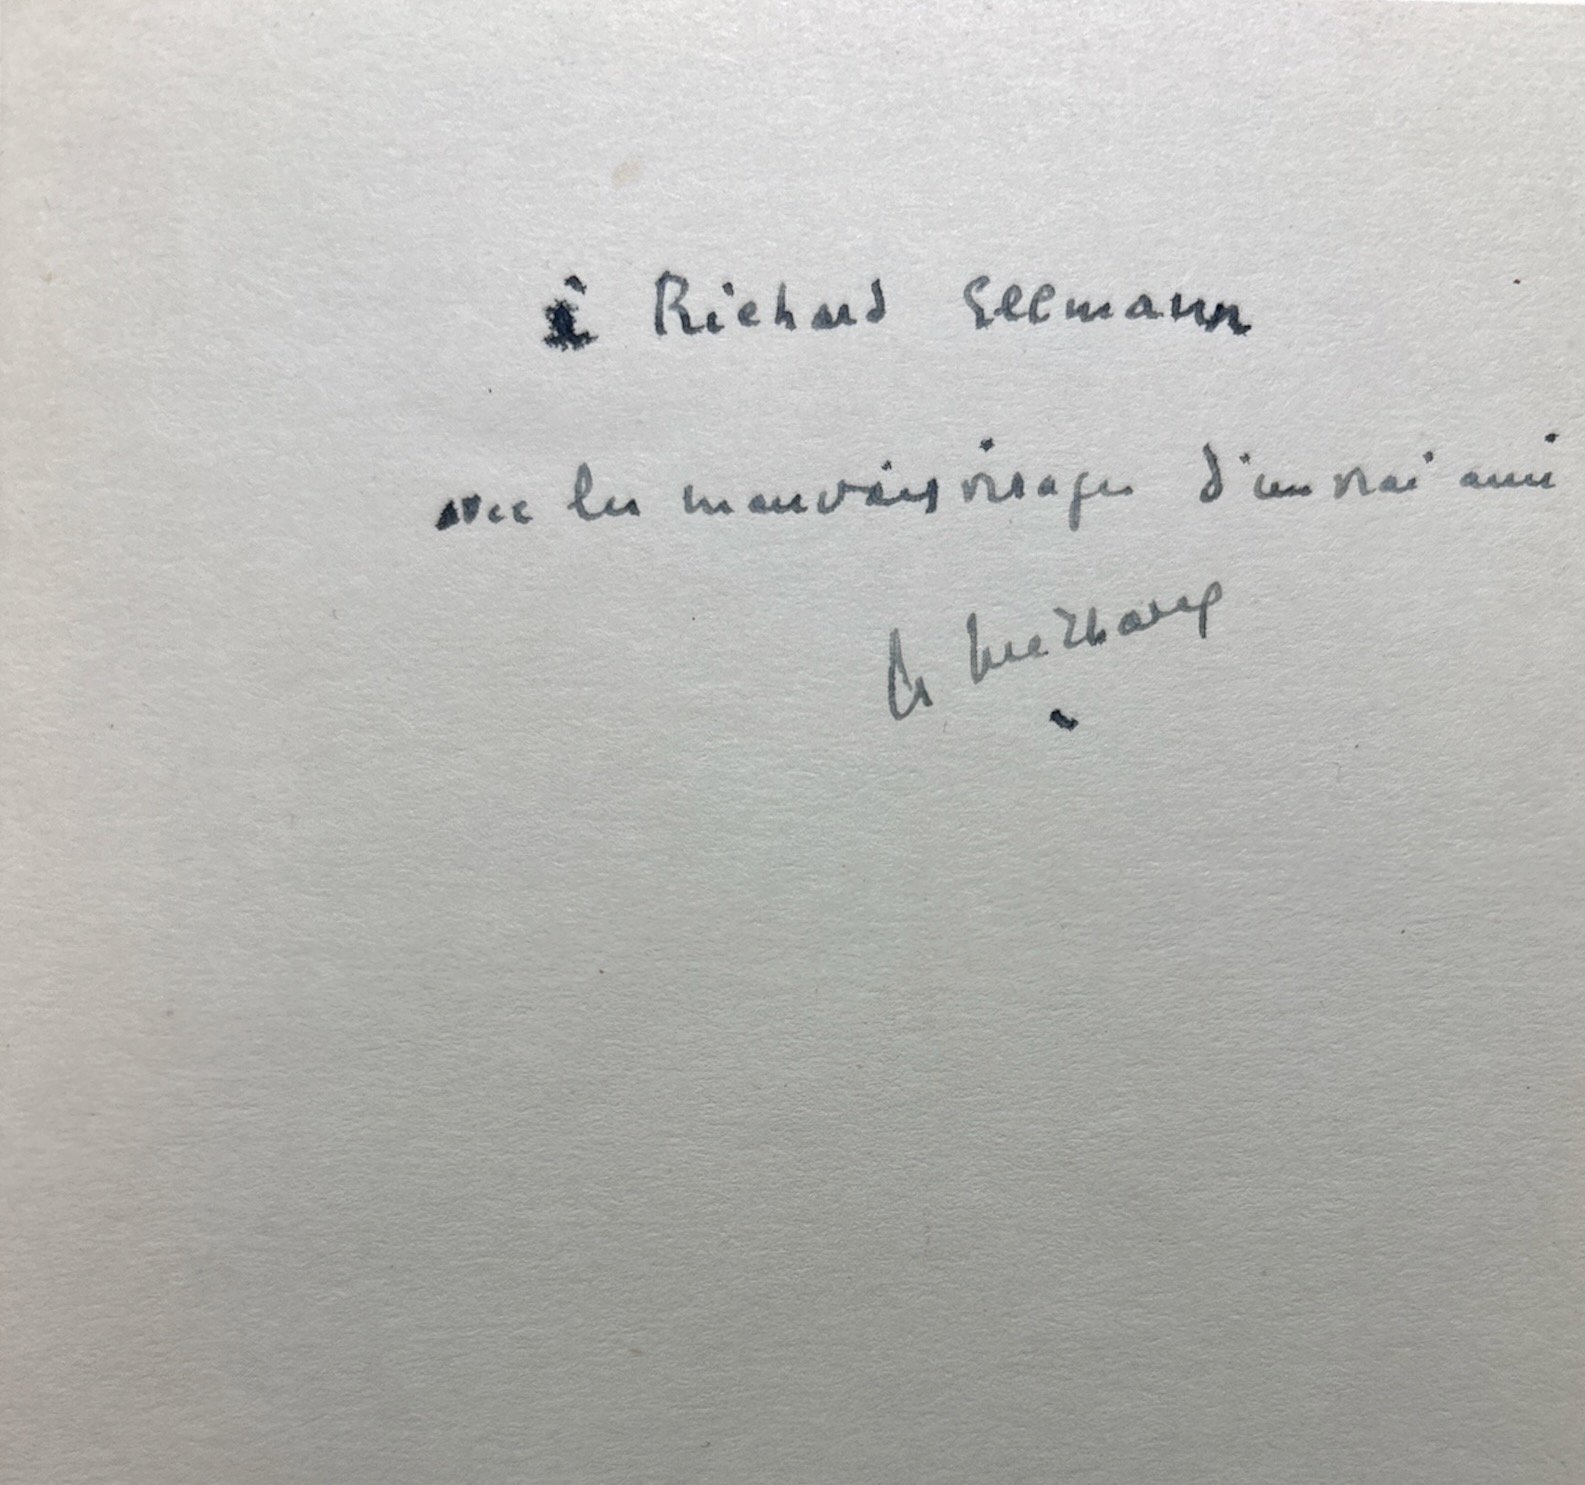 à Richard Ellmann
avec les mauvais visages d'un vrai ami
H Michaux